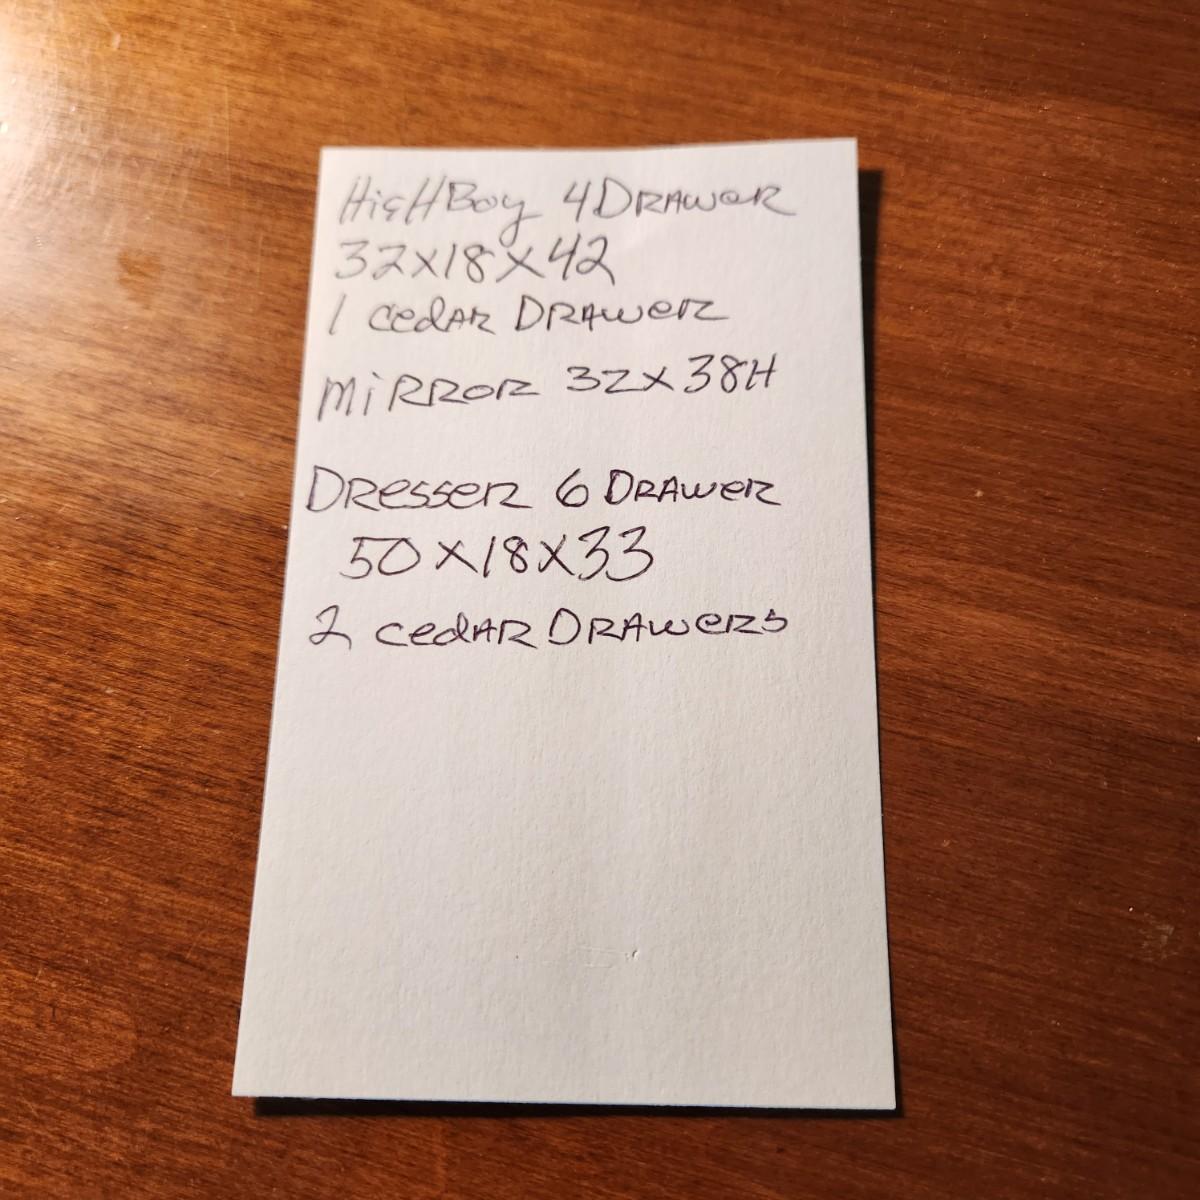 HigHBoy 4 DRAWeR
32x18x42
1 cedAR DRAWeR
MiRROR 32x38H
DResseR 6 DRAWeR
50x18x33
2 cedAR DRAWeRs